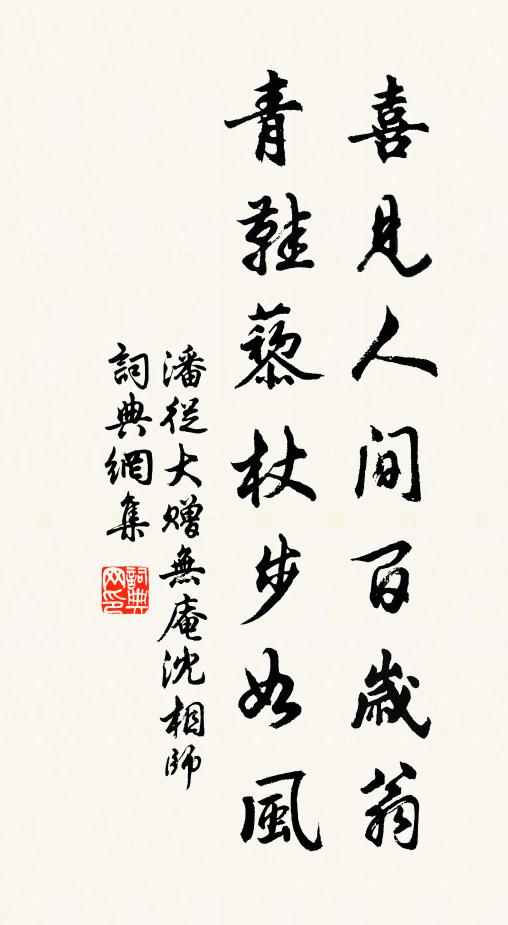 喜見人間百歲翁
青鞋藜杖步如風
潘從大贈無庵沈相師
詞典網集
詞典網印